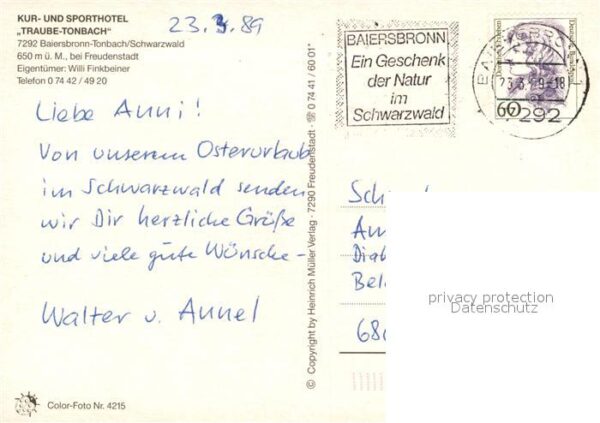 KUR- UND SPORTHOTEL
„TRAUBE-TONBACH"
7292 Baiersbronn-Tonbach/Schwarzwald
650 m ü. M., bei Freudenstadt
Eigentümer: Willi Finkbeiner
Telefon 0 74 42 / 49 20
23.3.89
Liebe Anni!
Von unserem Osterurlaub
im Schwarzwald senden
wir Dir herzliche Grüße
und viele gute Wünsche -
Walter u. Annel
Color-Foto Nr. 4215
© Copyright by Heinrich Müller Verlag · 7290 Freudenstadt · ☏ 0 74 41 / 60 01*
BAIERSBRONN
Ein Geschenk
der Natur
im
Schwarzwald
60
7292
privacy protection
Datenschutz